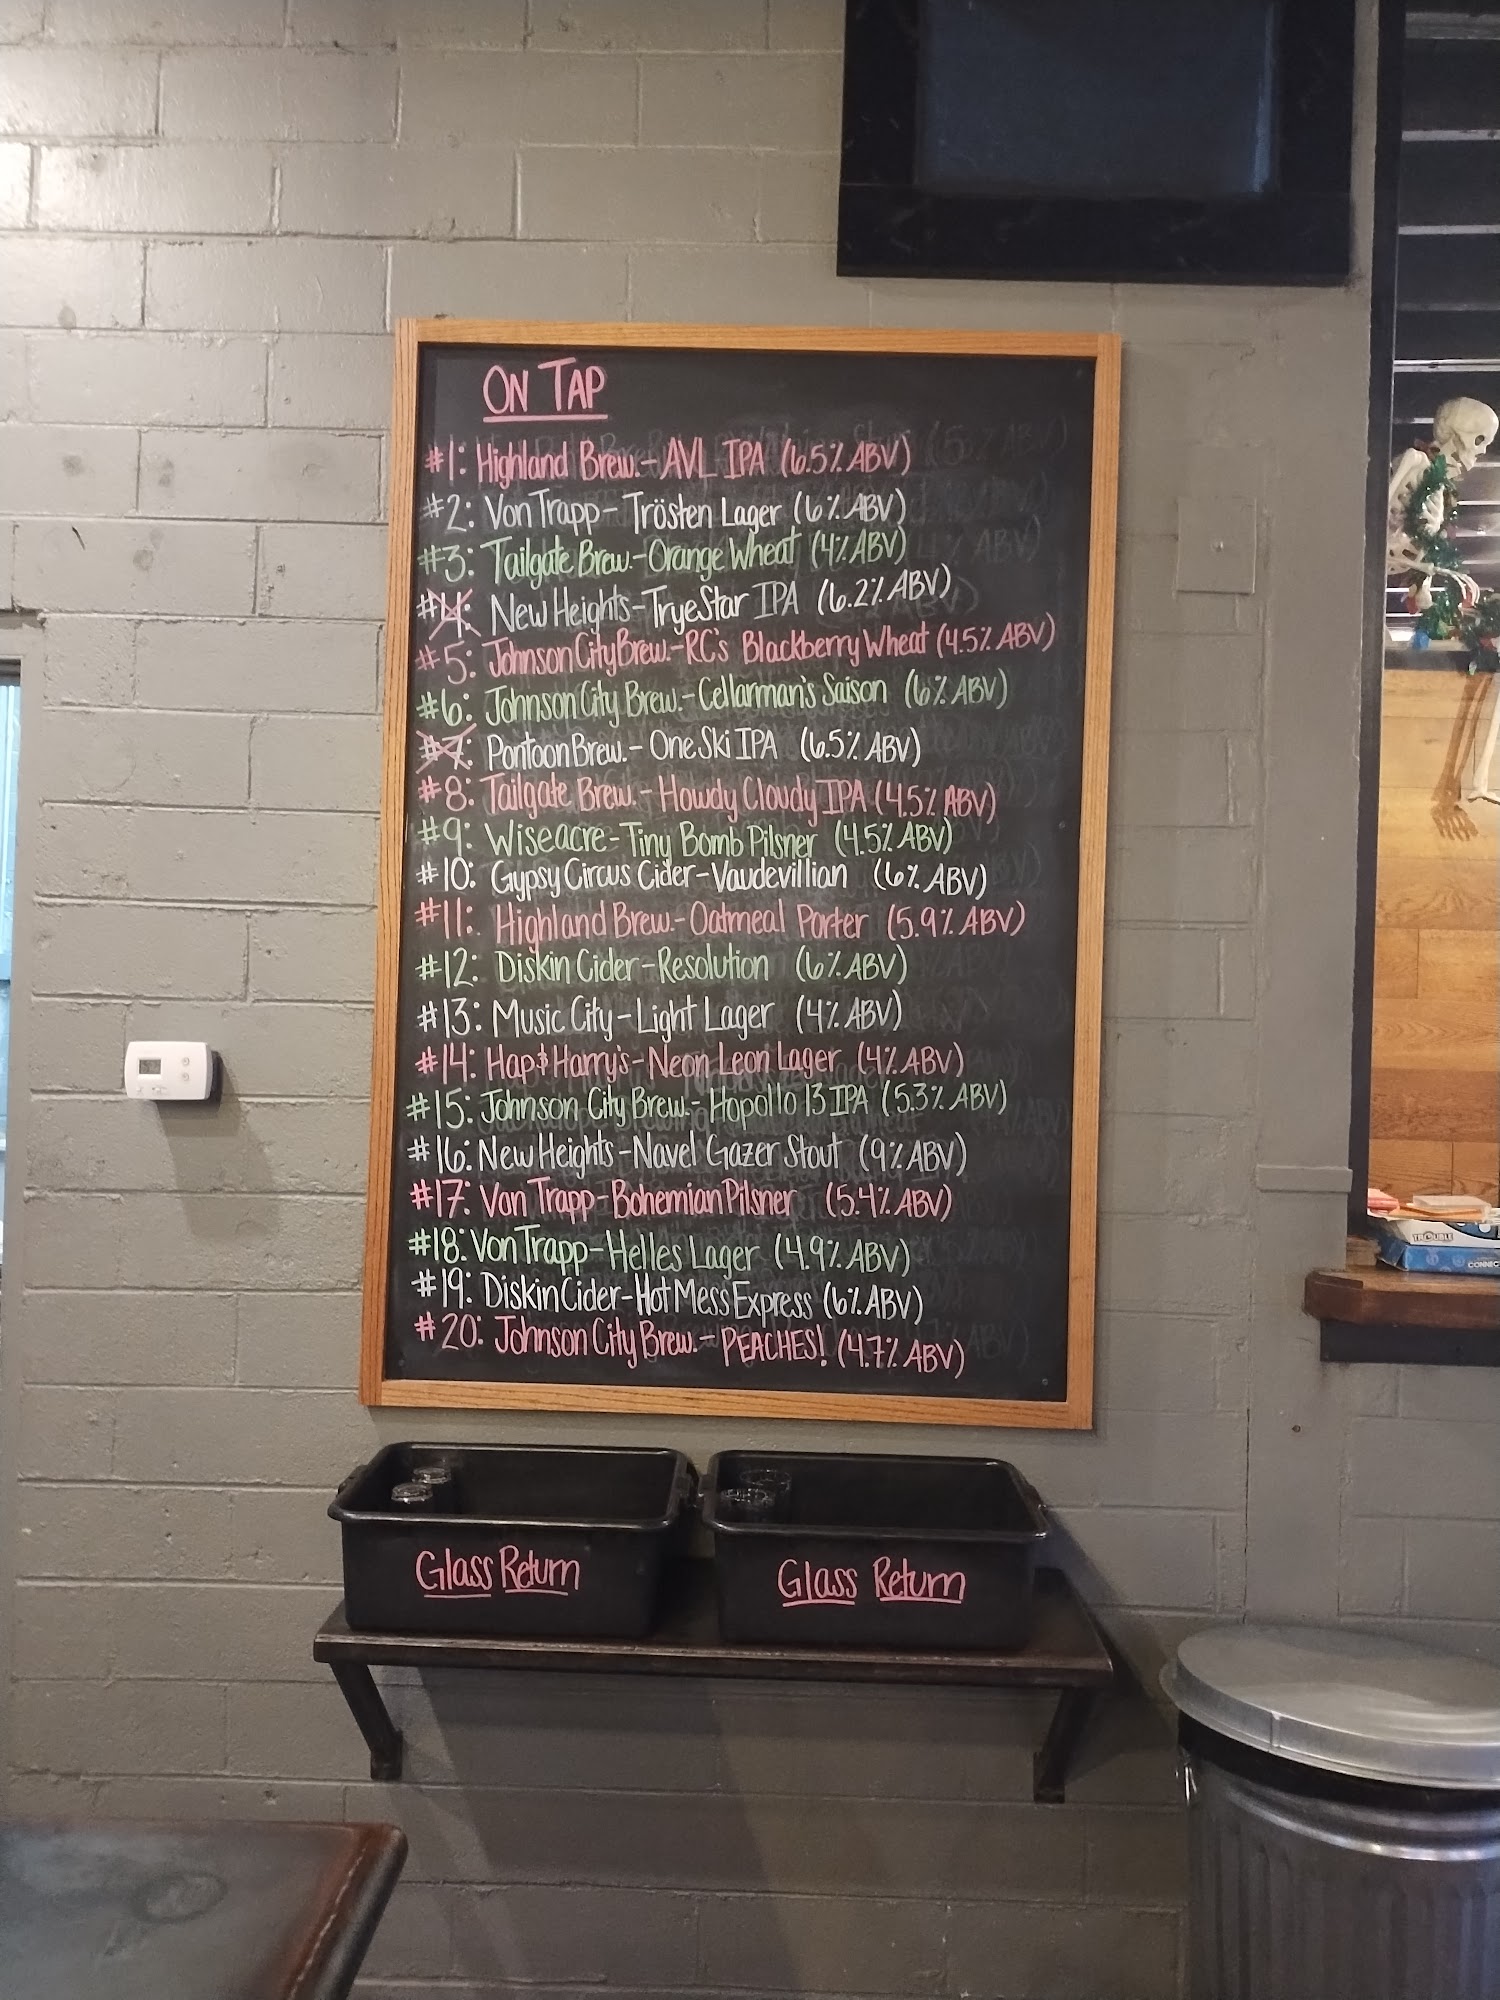 ON TAP
#1: Highland Brew.- AVL IPA (6.5% ABV)
#2: Von Trapp- Trösten Lager (6% ABV)
#3: Tailgate Brew.- Orange Wheat (4% ABV)
#4: New Heights- Trye Star IPA (6.2% ABV)
#5: Johnson City Brew.- RC's Blackberry Wheat (4.5% ABV)
#6: Johnson City Brew.- Cellarman's Saison (6% ABV)
#7: Pontoon Brew.- One Ski IPA (6.5% ABV)
#8: Tailgate Brew.- Howdy Cloudy IPA (4.5% ABV)
#9: Wiseacre- Tiny Bomb Pilsner (4.5% ABV)
#10: Gypsy Circus Cider- Vaudevillian (6% ABV)
#11: Highland Brew.- Oatmeal Porter (5.9% ABV)
#12: Diskin Cider- Resolution (6% ABV)
#13: Music City- Light Lager (4% ABV)
#14: Hap & Harry's- Neon Leon Lager (4% ABV)
#15: Johnson City Brew.- Hopollo 13 IPA (5.3% ABV)
#16: New Heights- Navel Gazer Stout (9% ABV)
#17: Von Trapp- Bohemian Pilsner (5.4% ABV)
#18: Von Trapp- Helles Lager (4.9% ABV)
#19: Diskin Cider- Hot Mess Express (6% ABV)
#20: Johnson City Brew.- PEACHES! (4.7% ABV)
Glass Return
Glass Return
TROUBLE
CONNEC